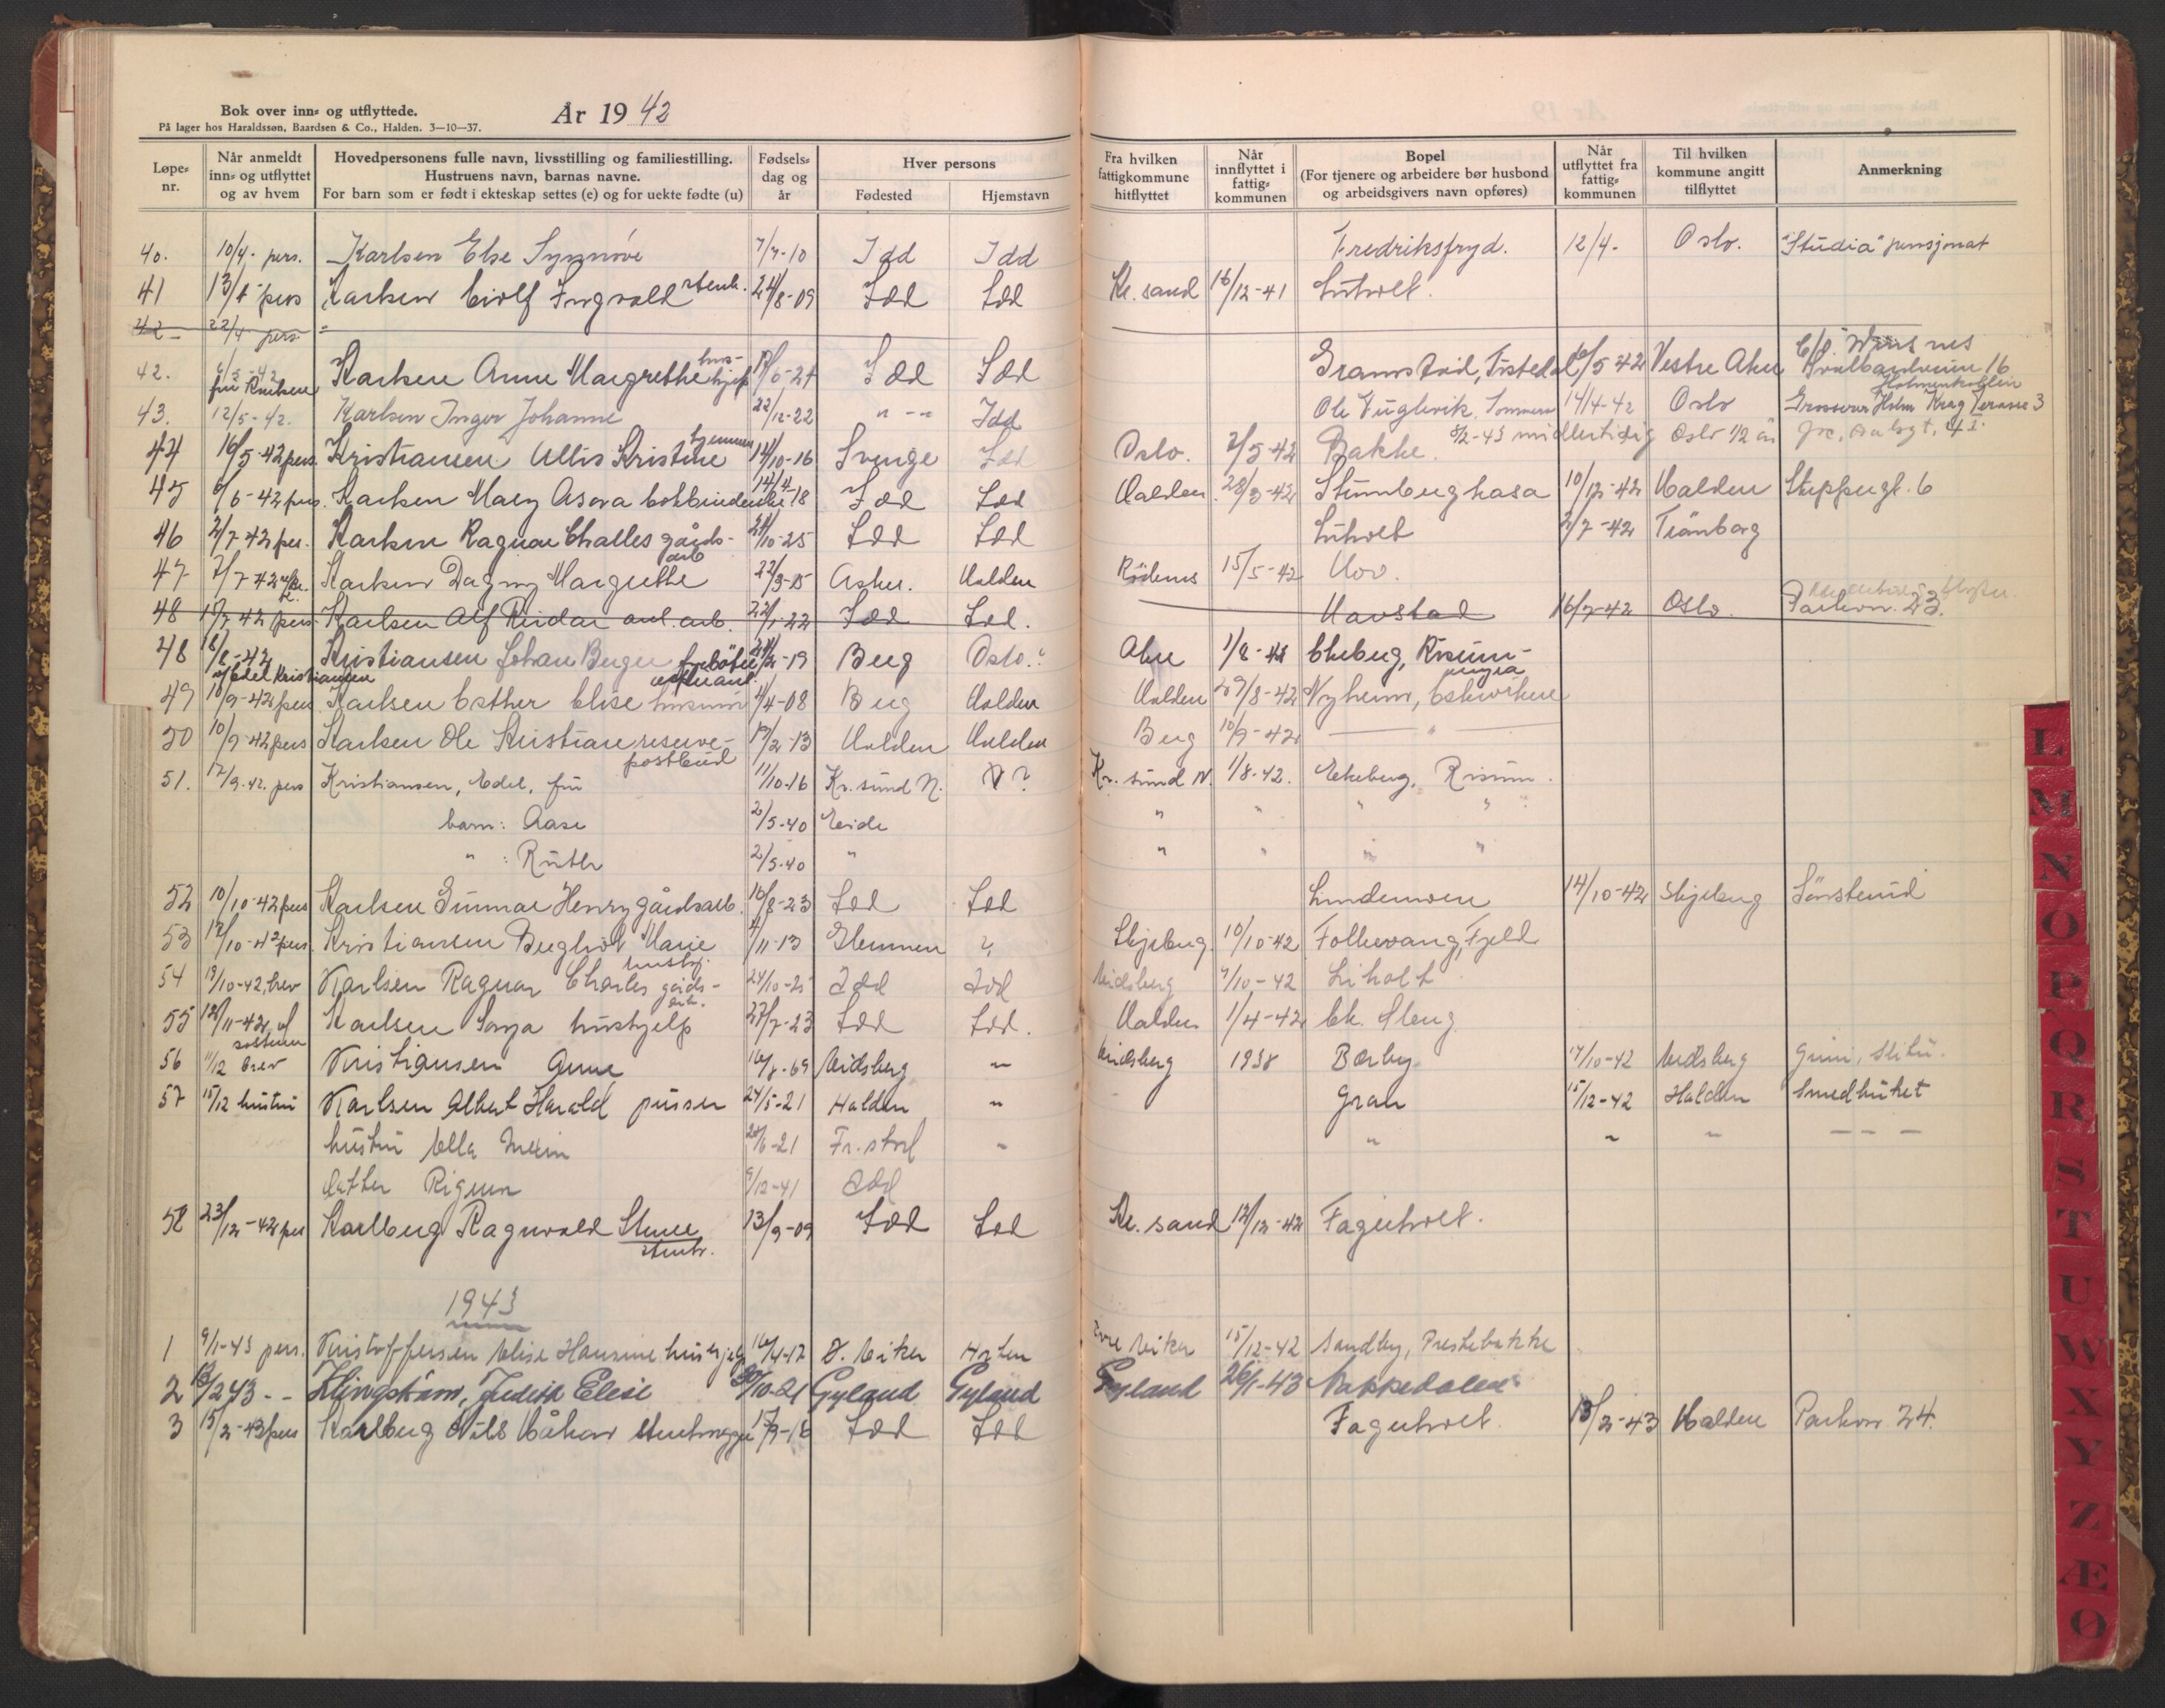 Bok over inn- og utflyttede.
På lager hos Haraldssøn, Baardsen & Co., Halden. 3—10—37.
År 1942
Løpe-nr.
Når anmeldt inn- og utflyttet og av hvem
Hovedpersonens fulle navn, livsstilling og familiestilling. Hustruens navn, barnas navne. For barn som er født i ekteskap settes (e) og for uekte fødte (u)
Fødsels-dag og år
Hver persons
Fødested
Hjemstavn
Fra hvilken fattigkommune hitflyttet
Når innflyttet i fattig-kommunen
Bopel (For tjenere og arbeidere bør husbond og arbeidsgivers navn opføres)
Når utflyttet fra fattig-kommunen
Til hvilken kommune angitt tilflyttet
Anmerkning
40. 10/4- pers. Karlsen Else Synnöve 7/7-10 Idd Idd Fredriksfryd. 12/4- Oslo. "Studia" pensjonat
41 13/4- pers Karlsen Eivolf Ingvald stenh. 24/8-09 Idd Idd Kr. sand 16/12-41 Liholt.
42 22/4- pers
42. 6/5-42 fru Karlsen Karlsen Anne Margrethe hushjelp Idd Idd Tistedal 6/5 42 Vestre Aker C/O
43. 12/5-42. Karlsen Inger Johanne 22/12-22 " -- " Idd Ole 14/4-42 Oslo Grosserer Holm Krag Terasse 3
44 16/5-42 pers. Kristiansen Kristine hjemme 14/10-16 Sverige Idd Oslo. 2/5-42 Bakke. 8/2-43 midlertidig Oslo 1/2 år
45 6/6-42 pers. Karlsen Mary Asora bokbinderske 14/4-18 Idd Idd Halden 28/3-42 Stumberghasa 10/12-42 Halden 6
46 2/7-42 per. Karlsen Ragnar Challes gårdsarb 24/10-25 Idd Idd Liholt 2/7-42 Tranborg
47 7/7 42 Karlsen Dagny Margrethe 22/3-15 Asker. Halden Rödenes 15/5-42 Hov.
48 15/7 42 pers. Karlsen Alf Reidar anl. arb. 22/1-22 Idd Idd. Havstad 16/7-42 Oslo. Parkvn. 23.
48 18/8-42 v/Edel Kristiansen Kristiansen Johan Berger 24/2-19 Berg Oslo.? Aker 1/8-42 Ekeberg, Risum-
49 10/9-42 pers Karlsen Esther Elise husmor 4/4-08 Berg Halden Halden 29/8-42 Nyheim, Eskeviken
50 10/9-42 pers Karlsen Ole Kristian reserve-postbud 19/2-13 Halden Halden Berg 10/9-42 — " —
51. 17/9-42. pers Kristiansen, Edel, fru 11/10-16 Kr. sund N. ? Kr. sund N. 1/8-42. Ekeberg, Risum.
barn: Aase 2/5-40 Eide " " " "
" : Ruth 2/5-40 " " " " "
52 10/10-42 pers Karlsen Gunnar Henry gårdsarb. 10/8-23 Idd Idd Lindemoen 14/10-42 Skjeberg Sönsterud
53 12/10-42 pers. Kristiansen Bergliot Marie hustru. 4/11-13 Glemmen ? Skjeberg. 10/10-42 Folkevang, Fjeld
54 19/10-42, brev Karlsen Ragnar Charles gårds-arb. 24/10-25 Idd Idd Eidsberg 9/10-42 Liholt
55 12/11-42 v/ søsteren Karlsen Sonja hushjelp 27/7-23 Idd Idd. Halden 1/4-42 Ek. Skog
56 11/12 brev Kristiansen Anne 16/8-69 Eidsberg — Eidsberg 1938 Bærby 14/10-42 Eidsberg Slitu.
57 15/12 hustru Karlsen Albert Harald pusser 24/5-21 Halden — Gran 15/12-42 Halden Smedhuket
hustru Ella 28/6-21 Fr. stad — " — — — — —
datter Rigmor 9/12-41 Idd
58 23/12-42 pers Karlberg Ragnvald Stene stenh. 13/9-09 Idd Idd Kr. sand 12/12-42 Fagerholt.
1943
1 9/1-43 pers. Kristoffersen Elise Hansine hushjelp 16/4-17 Ø. Eiker Horten Øvre Eiker 15/12-42 Sandby, Prestebakke
2 13/2 43 - - Klingström, Judith Elise 30/10-21 Gyland Gyland Gyland 26/1-43 Nakkedalen
3 15/2-43 pers Karlberg Nils Håkon stenhugger 17/3-18 Idd Idd Fagerholt. 13/2-43 Halden Parkvn. 24.
L
M
N
O
P
Q
R
S
T
U
W
X
Y
Z
Æ
Ø